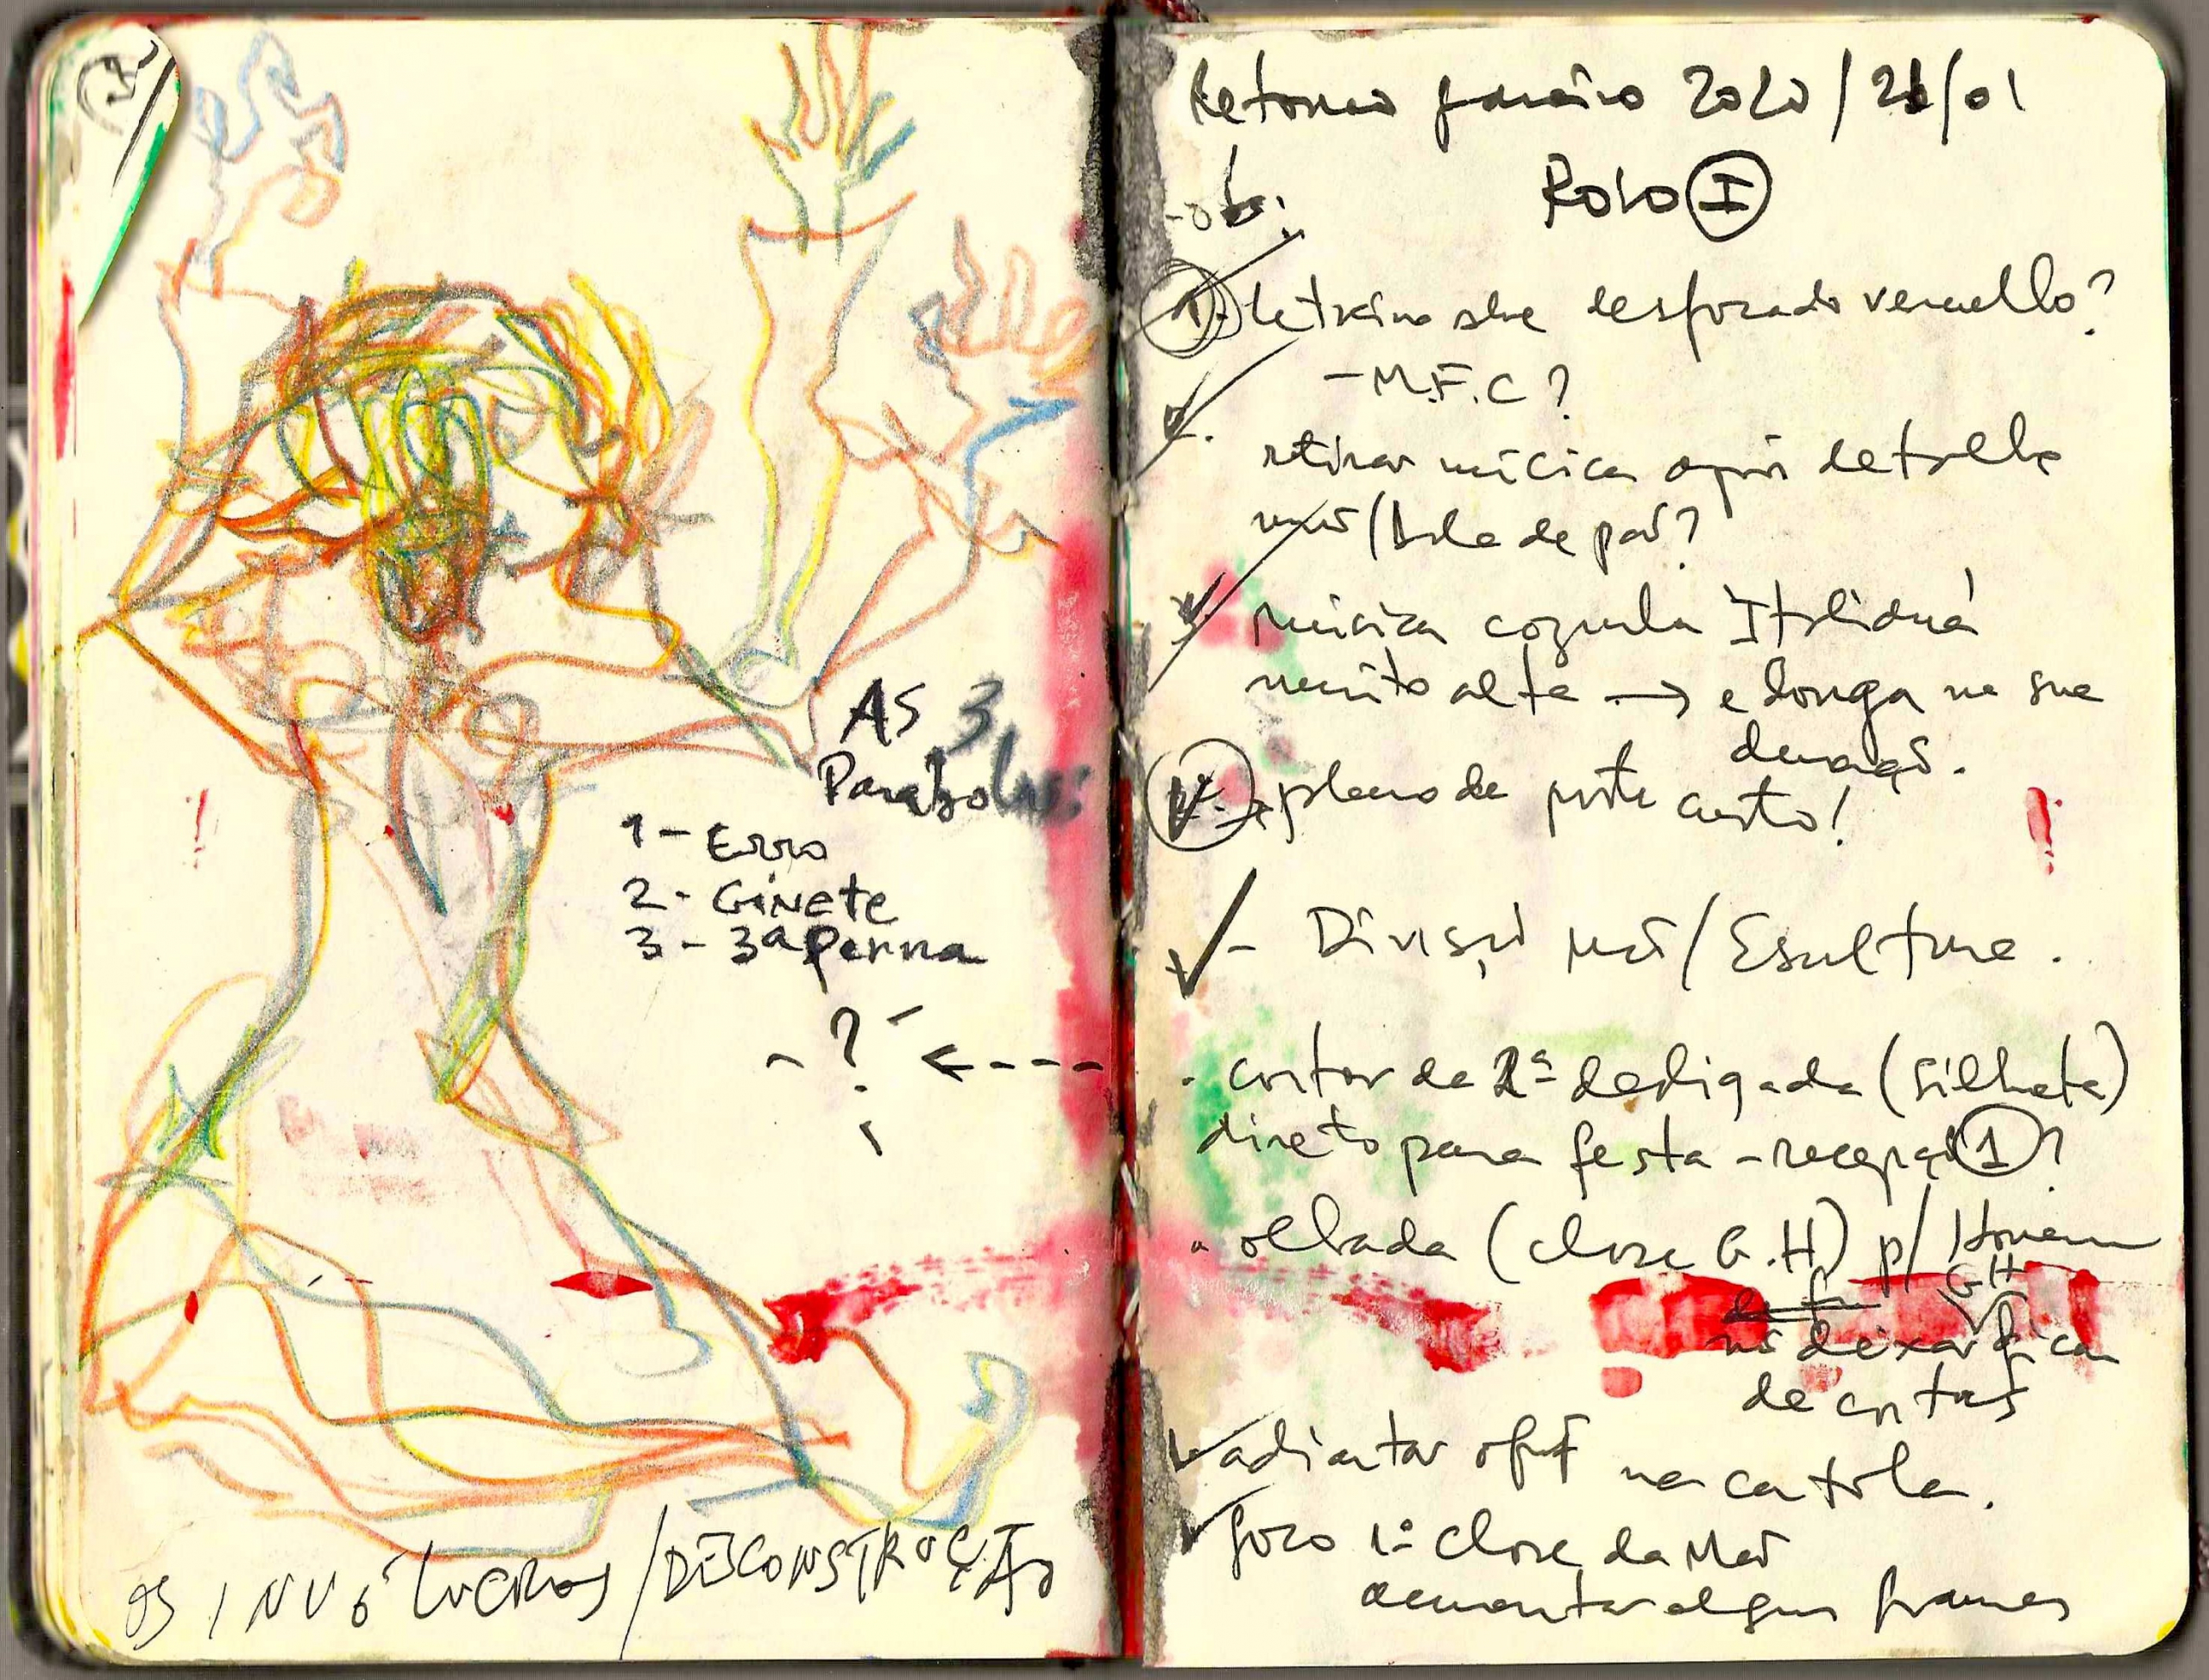 AS 3
Parábolas:
1 - Erro
2 - GiNete
3 - 3ª Perna
- ? -
OS INVÓLUCROS / DESCONSTRUÇÃO
Retorno janeiro 2020 / 21/01
Rolo I
- ob.:
1. letreino sobre desfocado vermello?
- M.F.C?
2. retirar música após detalhe
mão/bola de pão?
3. música cozinha Italiana
muito alta → e longa na sua
duração.
4. plano de corte curto!
- Divisão mão / Escultura.
. cortar da 2ª desligada (silhueta)
direto para festa - recepção 1?
. olhada (close G.H) p/ Homem
GH
não deixar ficar
de costas
adiantar na cartola.
foco 1º close da Mão
aumentar alguns frames